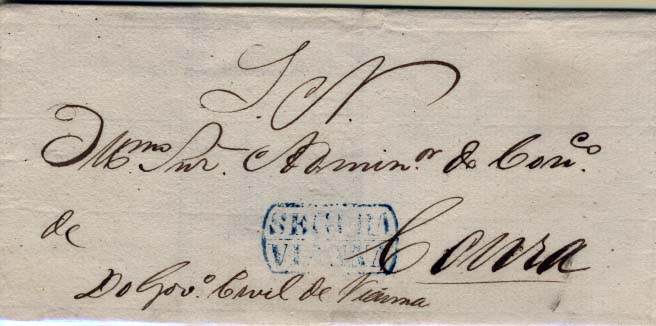 S. N.
Illmo. Snr. Adminor. do Conco.
de Coura
SEGURA
VIANNA
Do Govo. Civil de Vianna